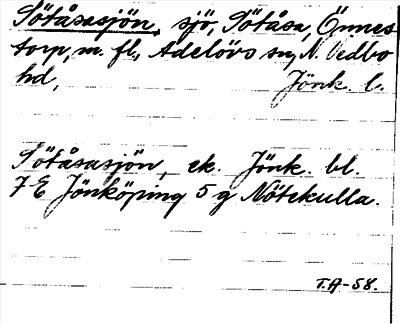 Sötåsasjön, sjö, Sötåsa, Önnes-
torp, m. fl., Adelövs sn, N. Vedbo
hd, Jönk. l.
Sötåsasjön, ek. Jönk. bl.
7 E Jönköping 5 g Nötekulla.
T.A-58.